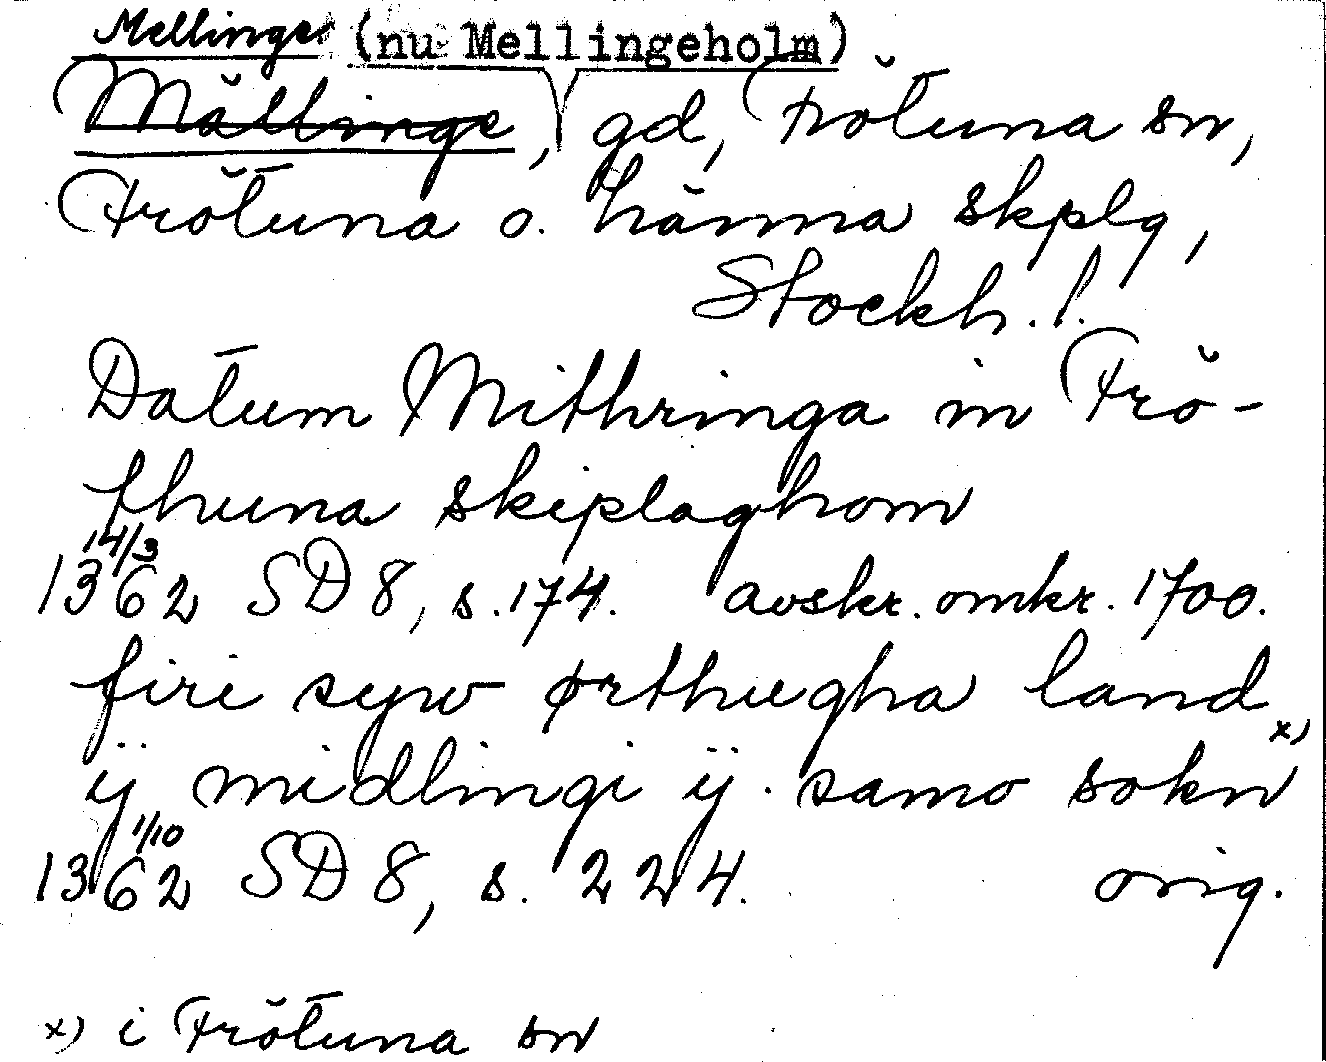 Mellinge (nu Mellingeholm)
Mällinge, gd, Frötuna sn,
Frötuna o. Länna skplg,
Stockh. l.
Datum Mithringa in Frö-
thuna skiplaghom
14/3
1362 SD 8, s. 174. avskr. omkr. 1700.
firi syw ørthugha land
ij midlingi ij samo sokn x)
1/10
1362 SD 8, s. 224. orig.
x) i Frötuna sn